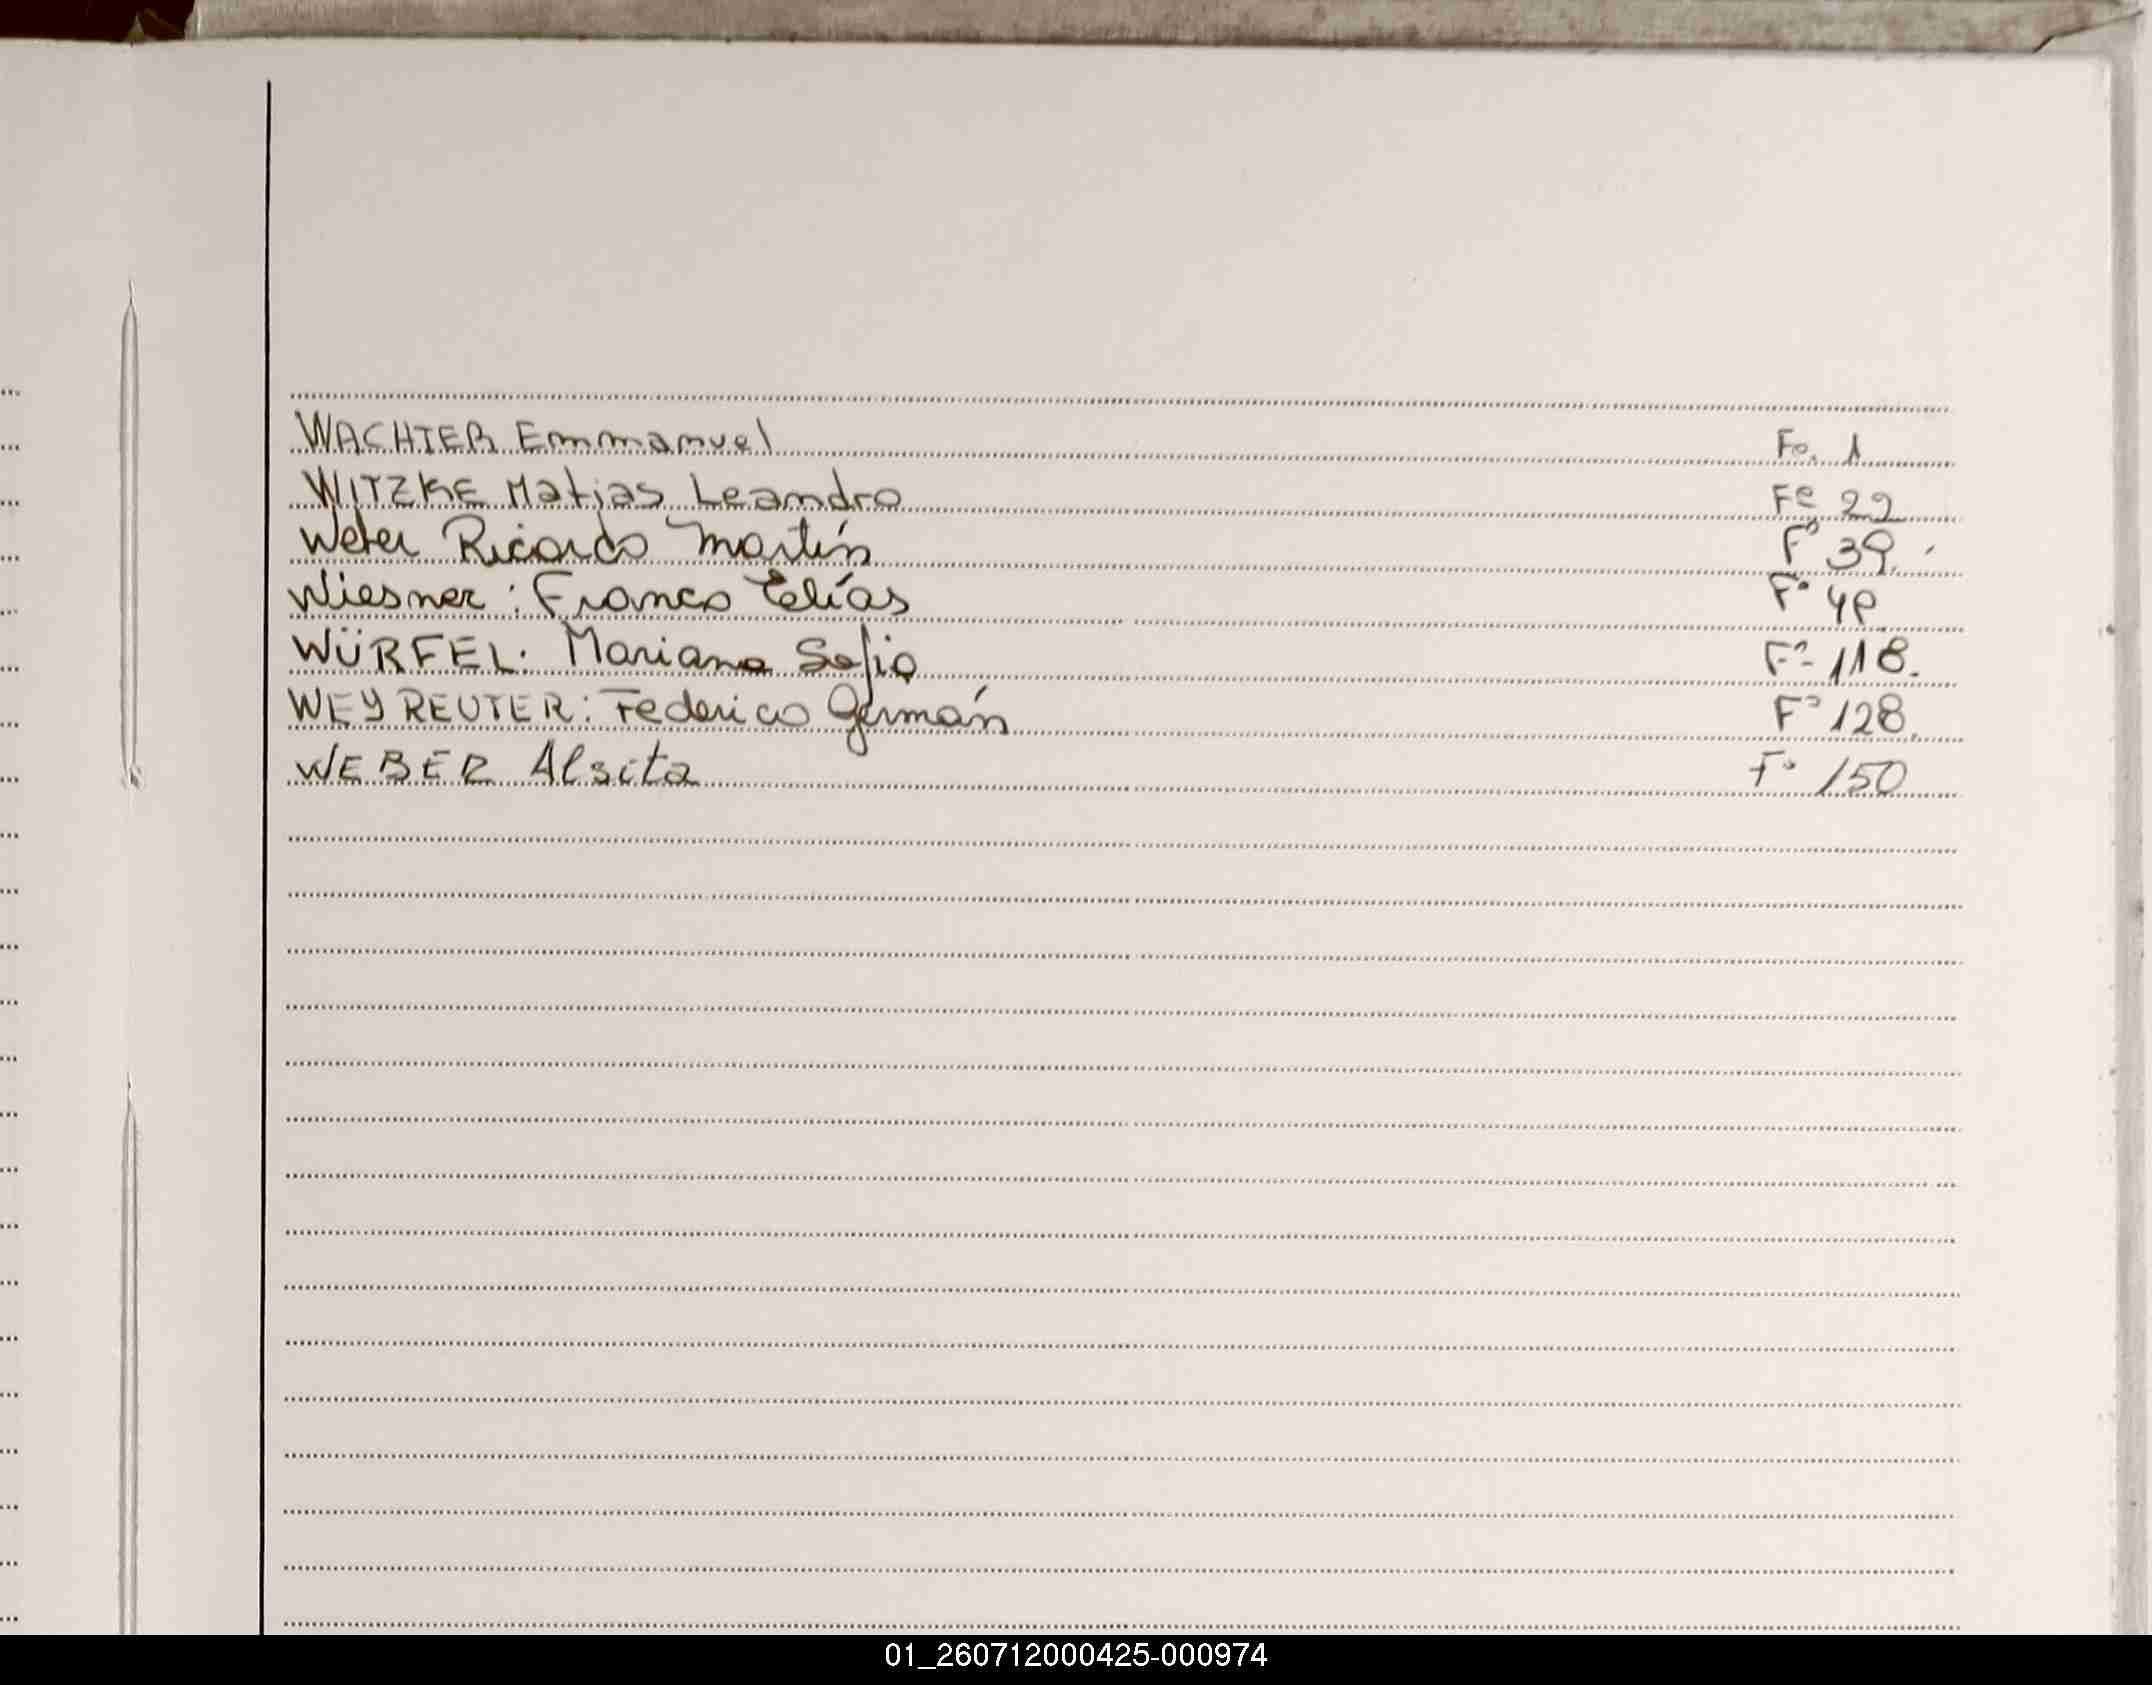 WACHTER Emmanuel Fo. 1
WITZKE Matias Leandro Fº 22
Weber Ricardo Martín Fº 39
Wiesner: Franco Elías Fº 49
WÜRFEL. Mariana Sofia Fº- 118.
WEYREUTER: Federico Germán Fº 128.
WEBER Alsita Fº 150
01_260712000425-000974